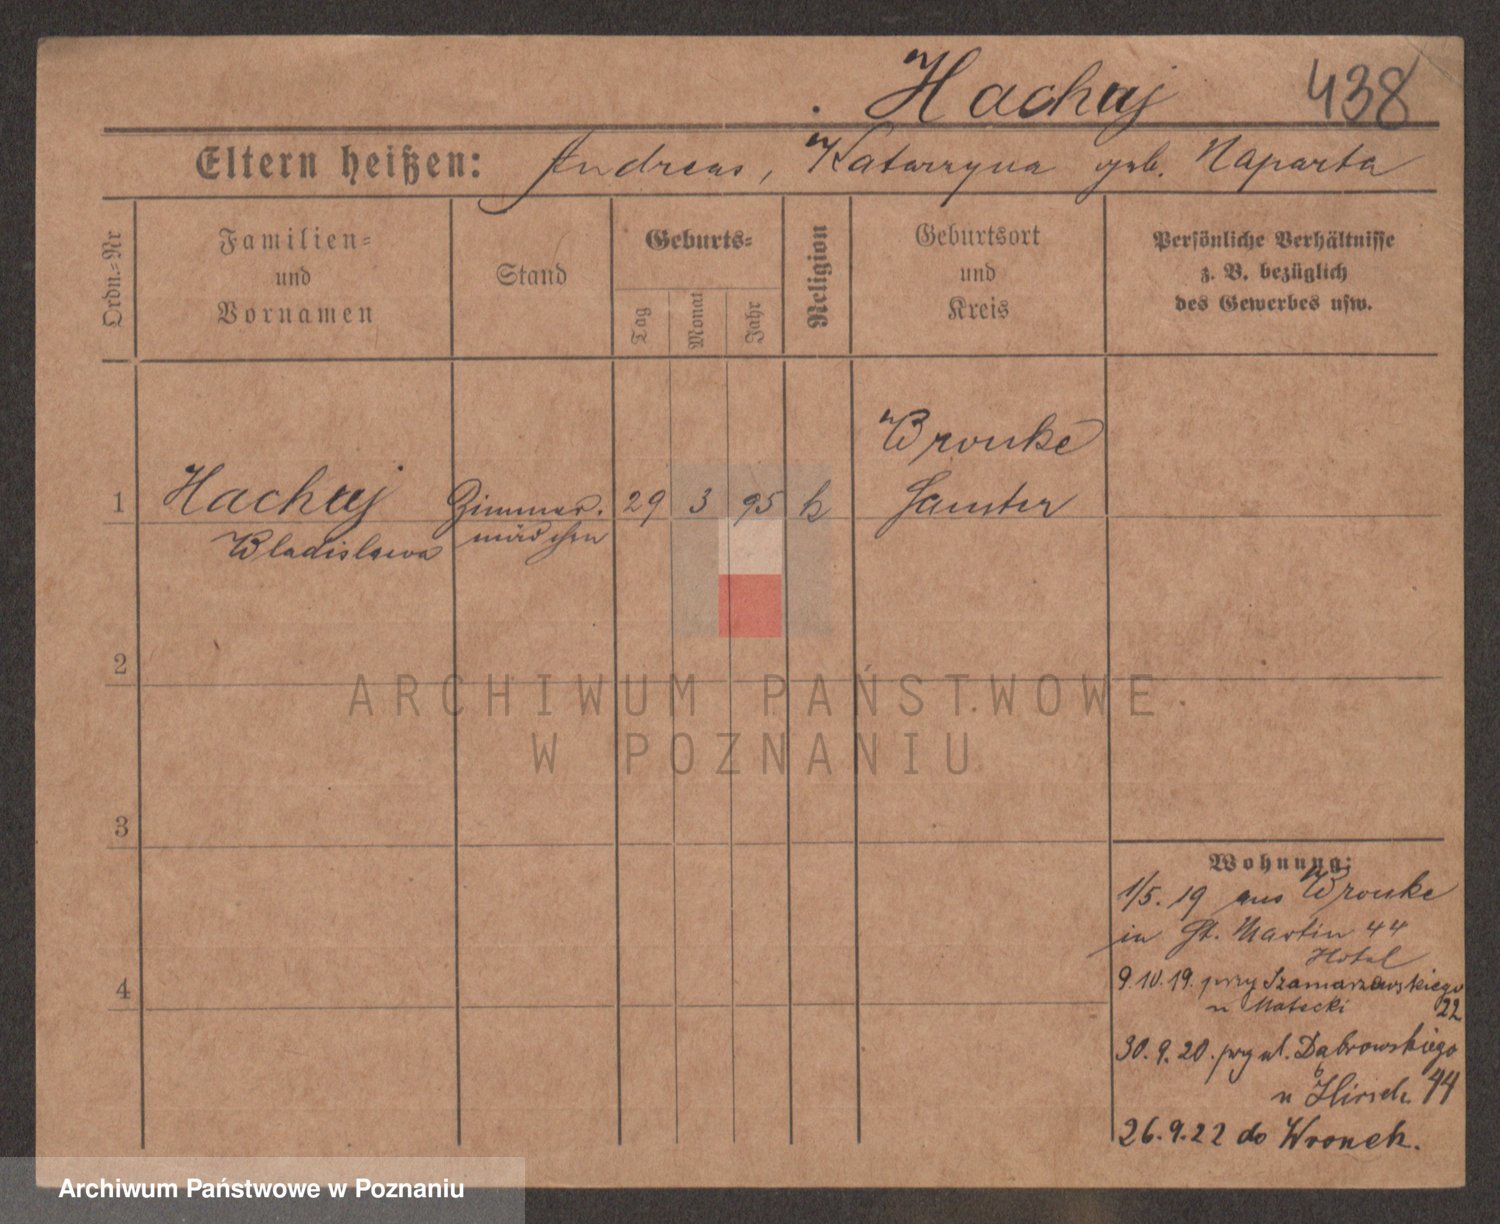 Hachaj 438
Eltern heißen: Andreas, Katarzyna geb. Naparta
Ordn.-Nr
Familien-
und
Vornamen
Stand
Geburts-
Tag
Monat
Jahr
Religion
Geburtsort
und
Kreis
Persönliche Verhältnisse
z. B. bezüglich
des Gewerbes usw.
1 Hachaj Zimmer- 29 3 95 k Wronke
Wladislawa mädchen Samter
2
3
4
Wohnung:
1/5. 19 aus Wronke
in St. Martin 44
Hotel
9.10.19. przy Szamarzewskiego
u Matecki 22
30.9.20. przy ul. Dąbrowskiego
u Hirsch 44
26.9.22 do Wronek.
ARCHIWUM PAŃSTWOWE
W POZNANIU
Archiwum Państwowe w Poznaniu